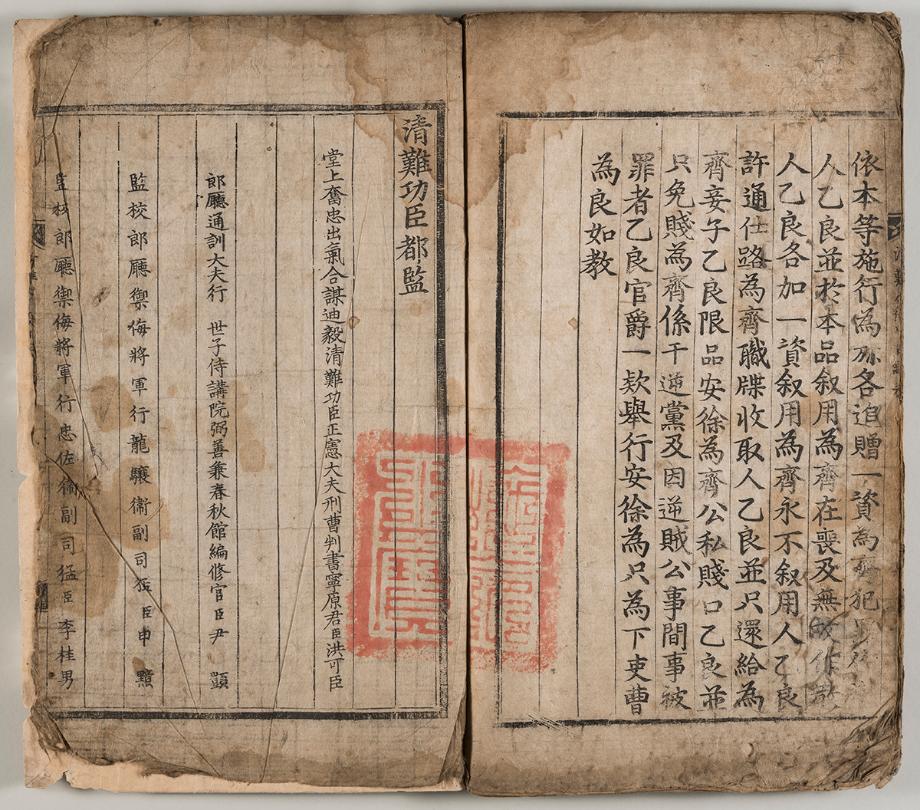 依本等施行爲㫆各追贈一資爲齊犯罪
人乙良並於本品叙用爲齊在喪及無故作散
人乙良各加一資叙用爲齊永不叙用人乙良
許通仕路爲齊職牒收取人乙良並只還給爲
齊妾子乙良限品安徐爲齊公私賤口乙良並
只免賤爲齊係干逆黨及因逆賊公事間事被
罪者乙良官爵一款舉行安徐爲只爲下吏曹
爲良如教
清難功臣都監
堂上奮忠出氣合謀迪毅清難功臣正憲大夫刑曹判書寧原君臣洪可臣
郎廳通訓大夫行 世子侍講院弼善兼春秋館編修官臣尹 顗
監校郎廳禦侮將軍行龍驤衛副司猛臣申 黯
監校郎廳禦侮將軍行忠佐衛副司猛臣李桂男